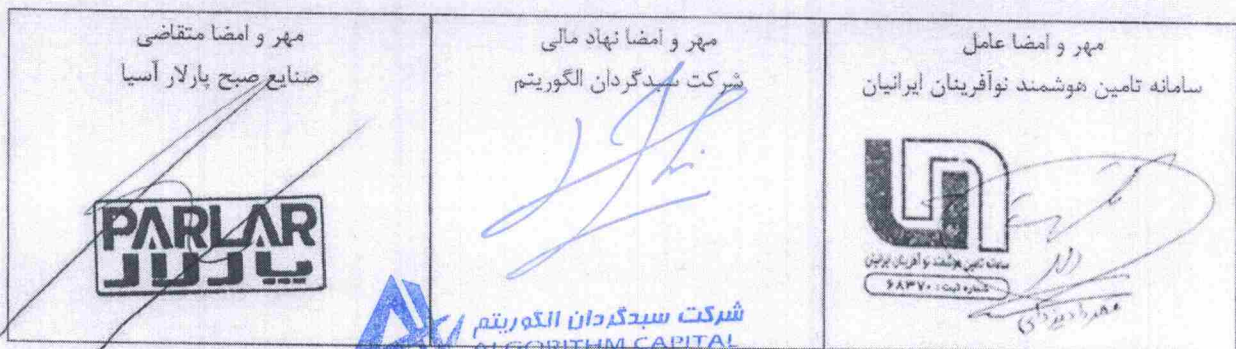 مهر و امضا عامل
سامانه تامین هوشمند نوآفرینان ایرانیان
سامانه تامین هوشمند نوآفرینان ایرانیان
شماره ثبت: ۶۸۳۷۰
مهر و امضا نهاد مالی
شرکت سبدگردان الگوریتم
شرکت سبدگردان الگوریتم
ALGORITHM CAPITAL
مهر و امضا متقاضی
صنایع صبح پارلار آسیا
PARLAR
پارلار